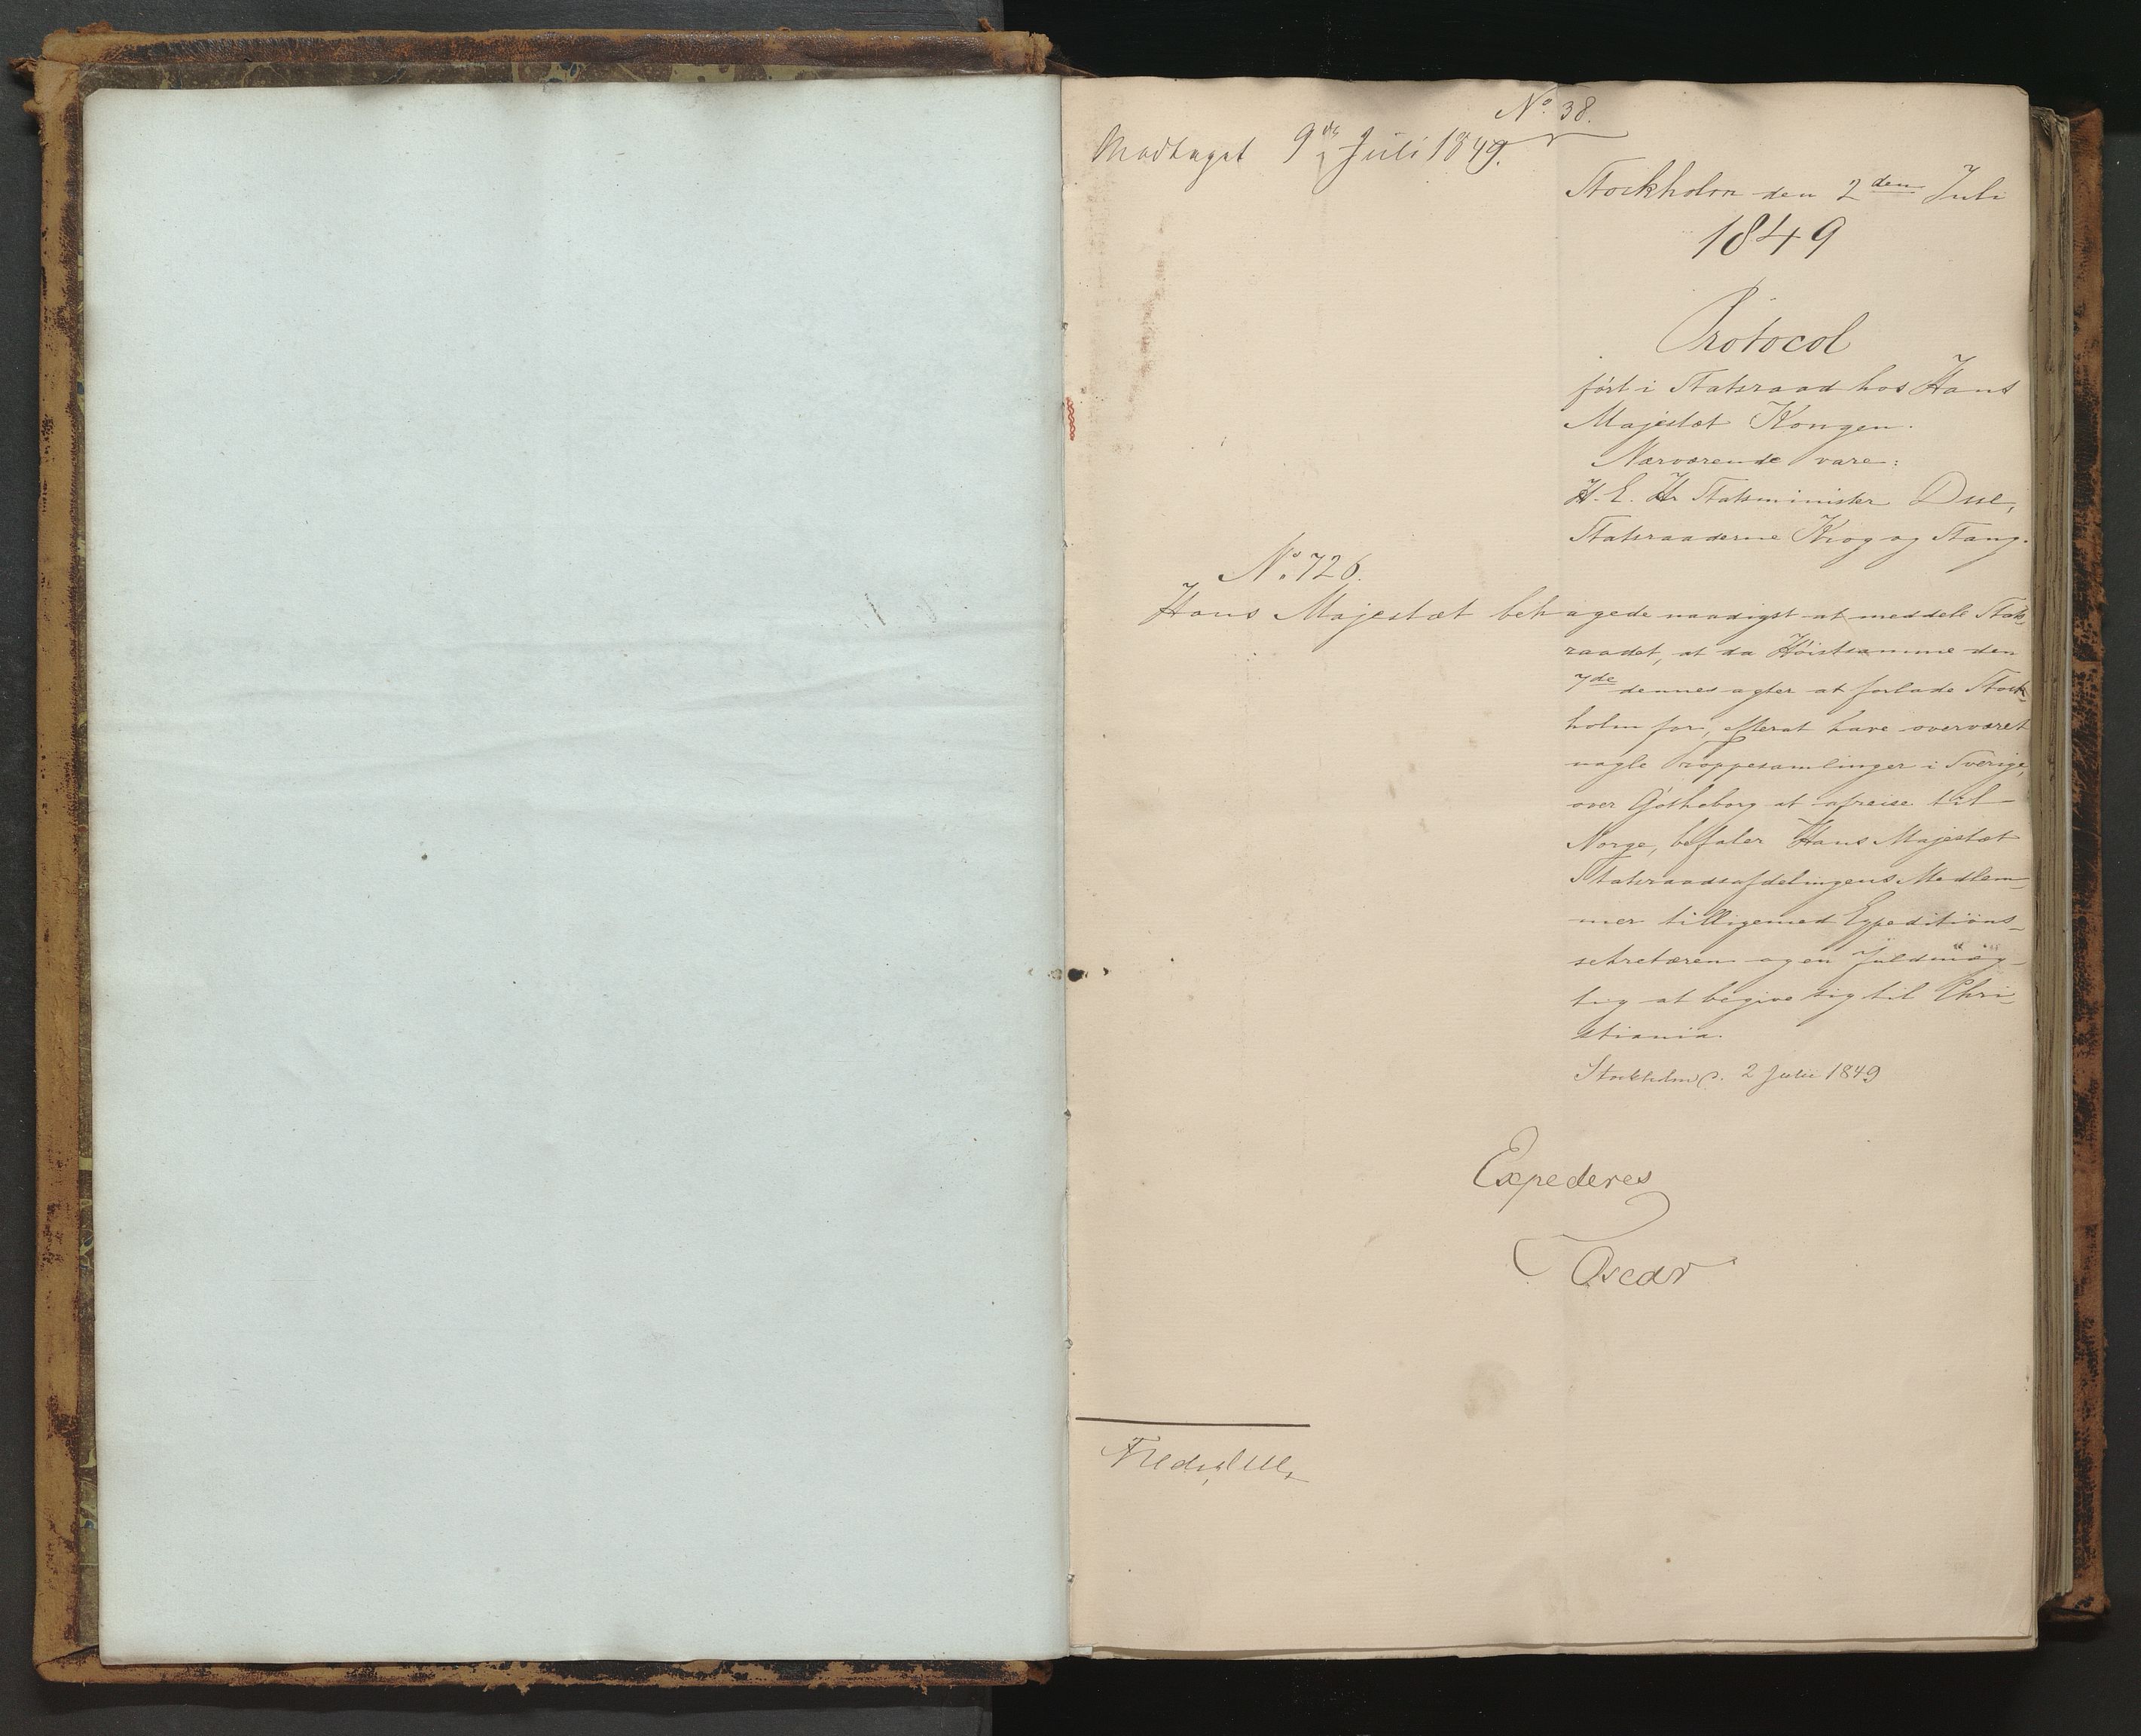 No. 38.
Modtaget 9de Juli 1849.
Stockholm den 2den Juli
1849
Protocol
ført i Statsraad hos Hans
Majestæt Kongen.
Nærværende vare:
H. E. Hr Statsminister Due,
Statsraaderne Krog og Stang.
No. 726.
Hans Majestæt behagede naadigst at meddele Stats-
raadet, at da Høistsamme den
7de dennes agter at forlade Stock-
holm for, efterat have overværet
nogle Troppesamlinger i Sverige,
over Gøtheborg at afreise til
Norge, befaler Hans Majestæt
Statsraadsafdelingens Medlem-
mer tilligemed Expeditions-
sekretæren og en Fuldmæg-
tig at begive sig til Chri-
stiania.
Stockholm d. 2 Juli 1849
Expederes
Oscar